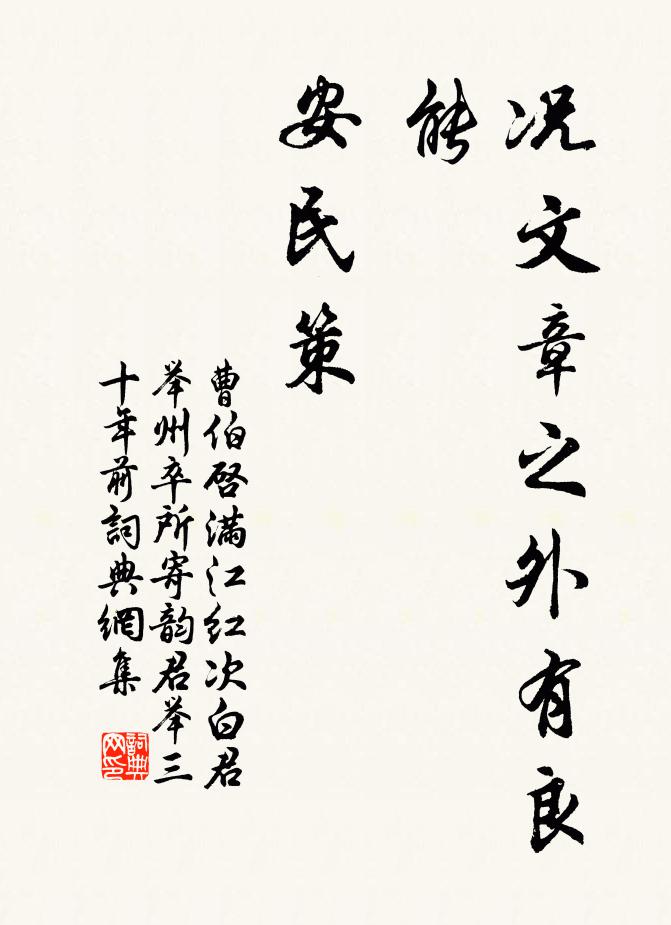 况文章之外有良
能
安民策
曹伯启满江红次白君
举州卒所寄韵君举三
十年前詞典網集
詞典网印